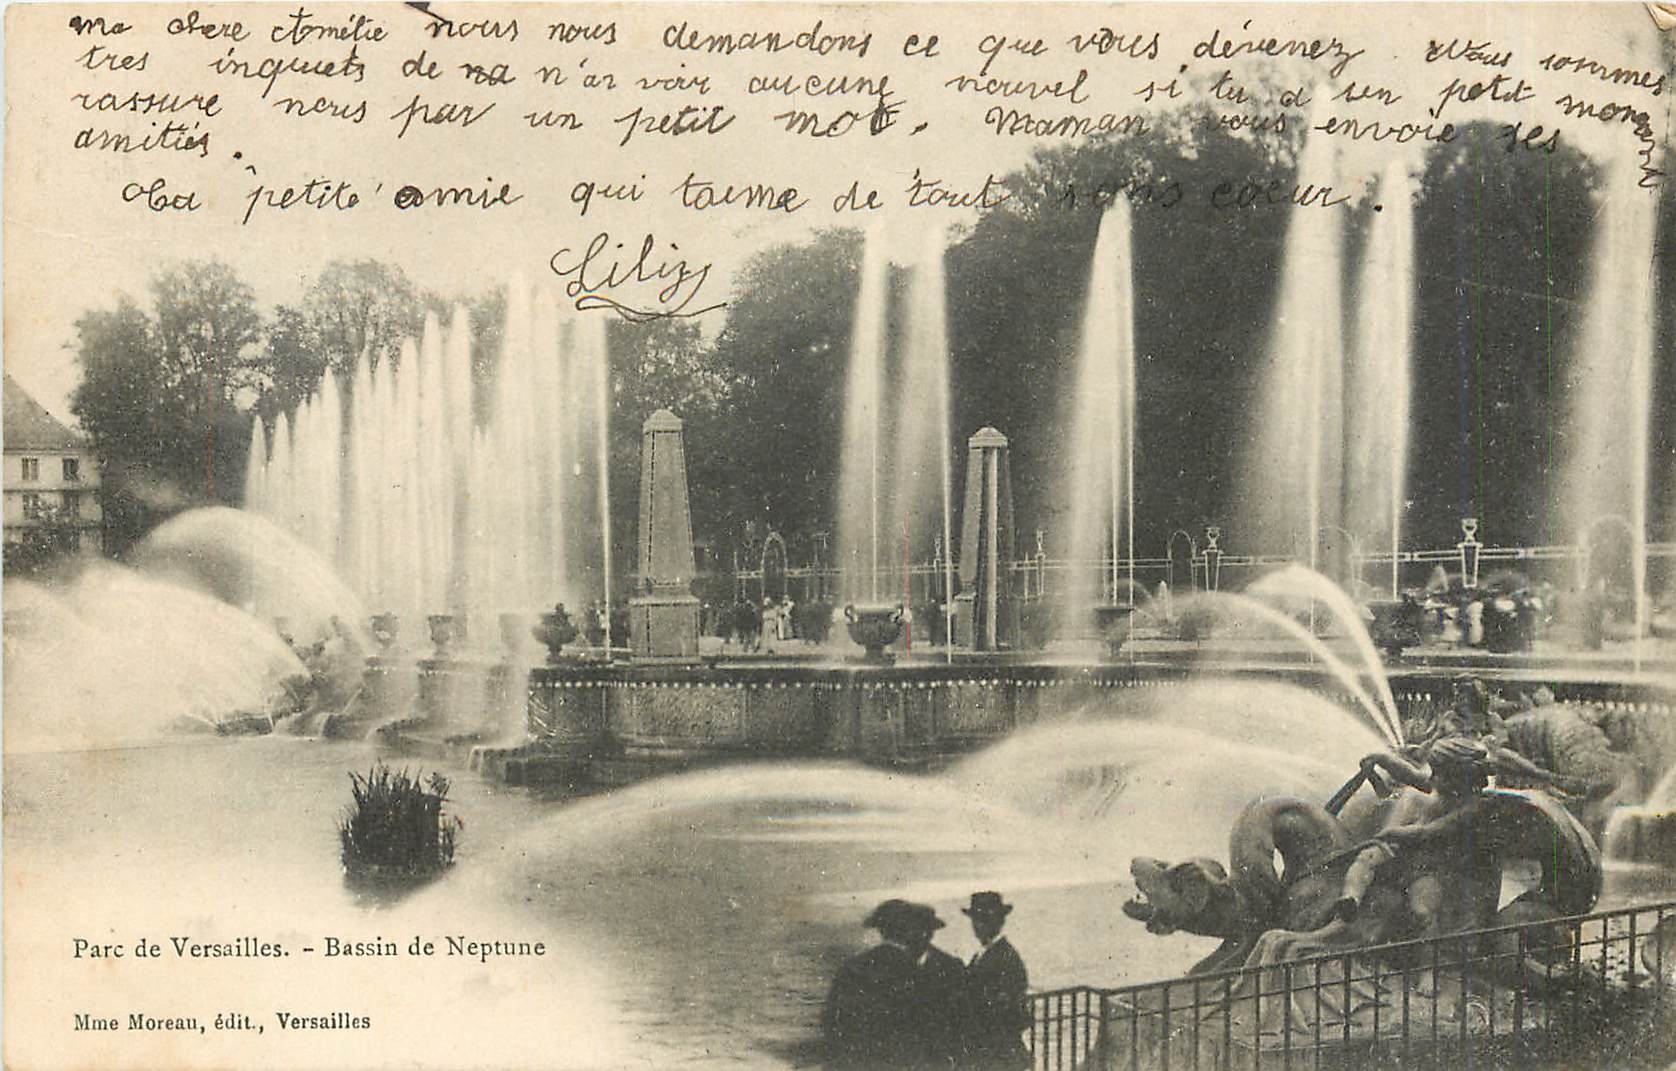 ma chere Amélie nous nous demandons ce que vous dévenez. Nous sommes
tres inquiets de na n'as voir aucune nouvel si tu a un petit moment
rassure nous par un petit mot. Maman vous envoie ses
amitiés.
Ta petite amie qui taime de tout sons coeur.
Lilizs
Parc de Versailles. - Bassin de Neptune
Mme Moreau, édit., Versailles